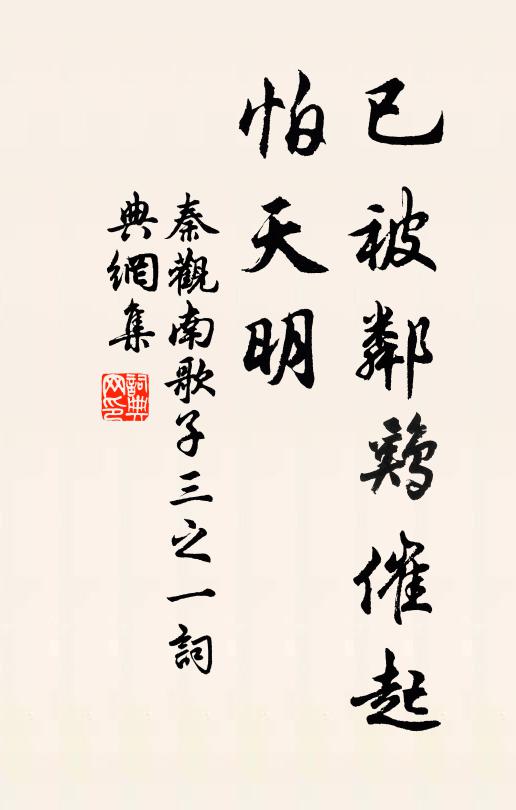 已被鄰鷄催起
怕天明
秦觀南歌子三之一詞
典網集
詞典
网印